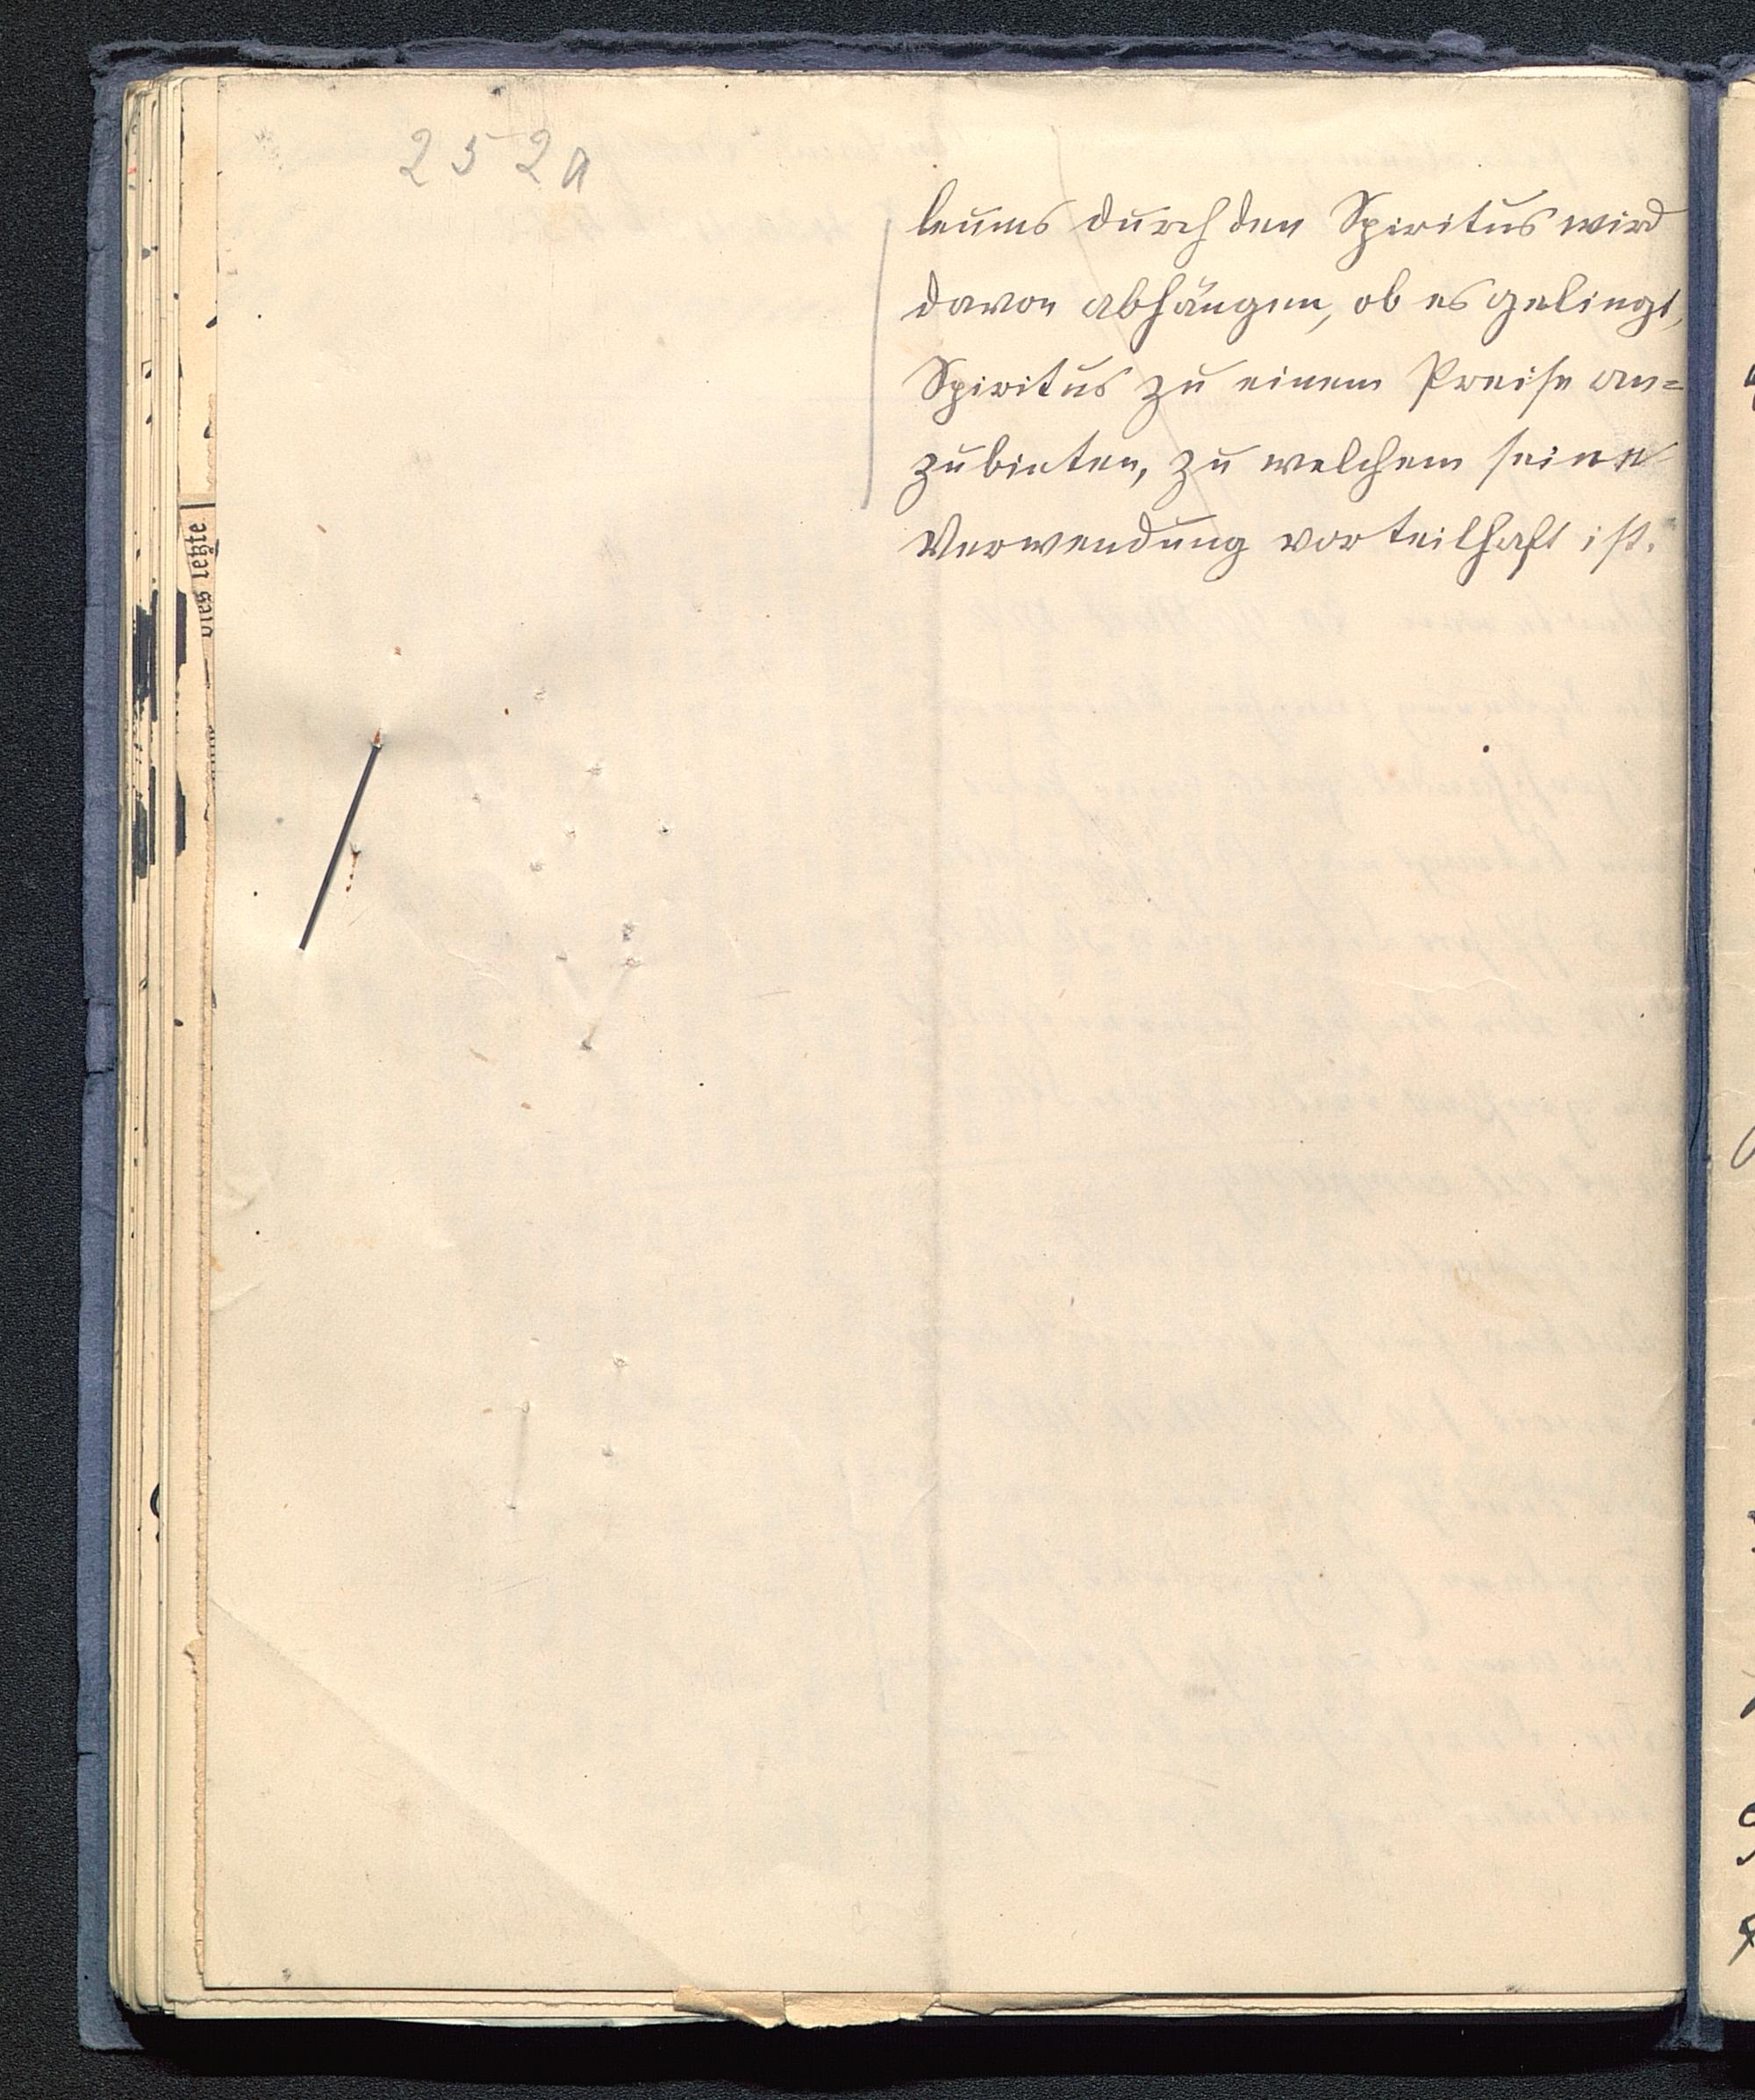 252a
leums durch den Spiritus wird
davon abhängen, ob es gelingt,
Spiritus zu einem Preise an=
zubieten, zu welchem seine
Verwendung vorteilhaft ist.
dies letzte